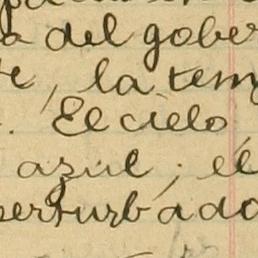 a del gober
te, la tem
. El cielo,
azul; él
perturbado